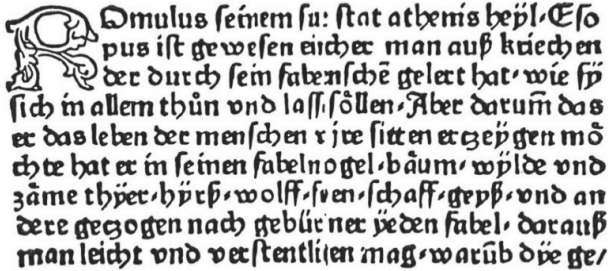 Romulus seinem su: stat athenis heÿl. Eso
pus ist gewesen eincher man auß kriechen
der durch sein fabenschē gelert hat. wie sÿ
sich in allem thůn vnd lass. söllen. Aber darum̄ das
er das leben der menschen vnd jre sitten erczeÿgen mö
chte hat er in seinen fabelnogel. bäum. wÿlde vnd
zäme thÿer. hÿrß. wolff. suen. schaff. geÿß. vnd an
dere geczogen nach gebürner ÿeden fabel. darauß
man leicht vnd verstentlichen mag. warūb dÿe ge/